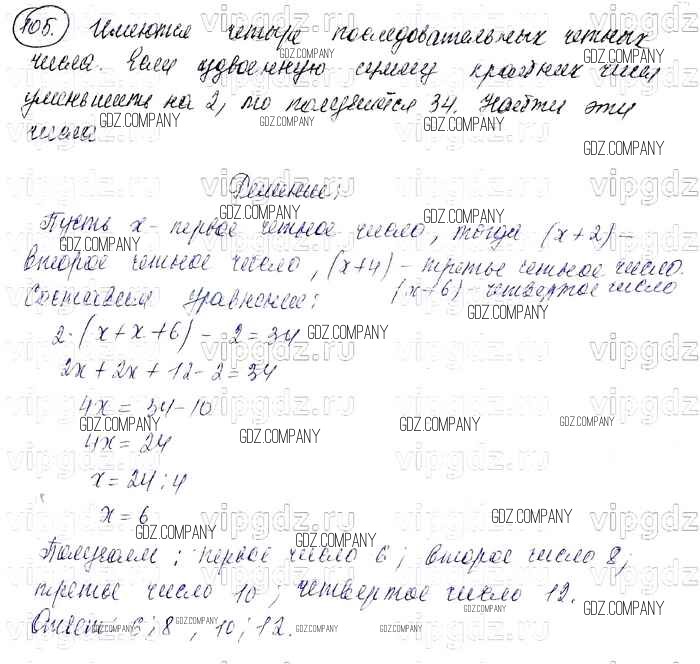 105. Имеются четыре последовательных четных
числа. Если удвоенную сумму крайних чисел
уменьшить на 2, то получится 34. Найти эти
числа
Решение:
Пусть x - первое четное число, тогда (x+2) -
второе четное число, (x+4) - третье четное число.
(x+6) - четвертое число
Составляем уравнение:
2·(x+x+6) - 2 = 34
2x + 2x + 12 - 2 = 34
4x = 34 - 10
4x = 24
x = 24 : 4
x = 6
Получаем: первое число 6; второе число 8;
третье число 10; четвертое число 12.
Ответ: 6; 8; 10; 12.
vipgdz.ru
GDZ.COMPANY